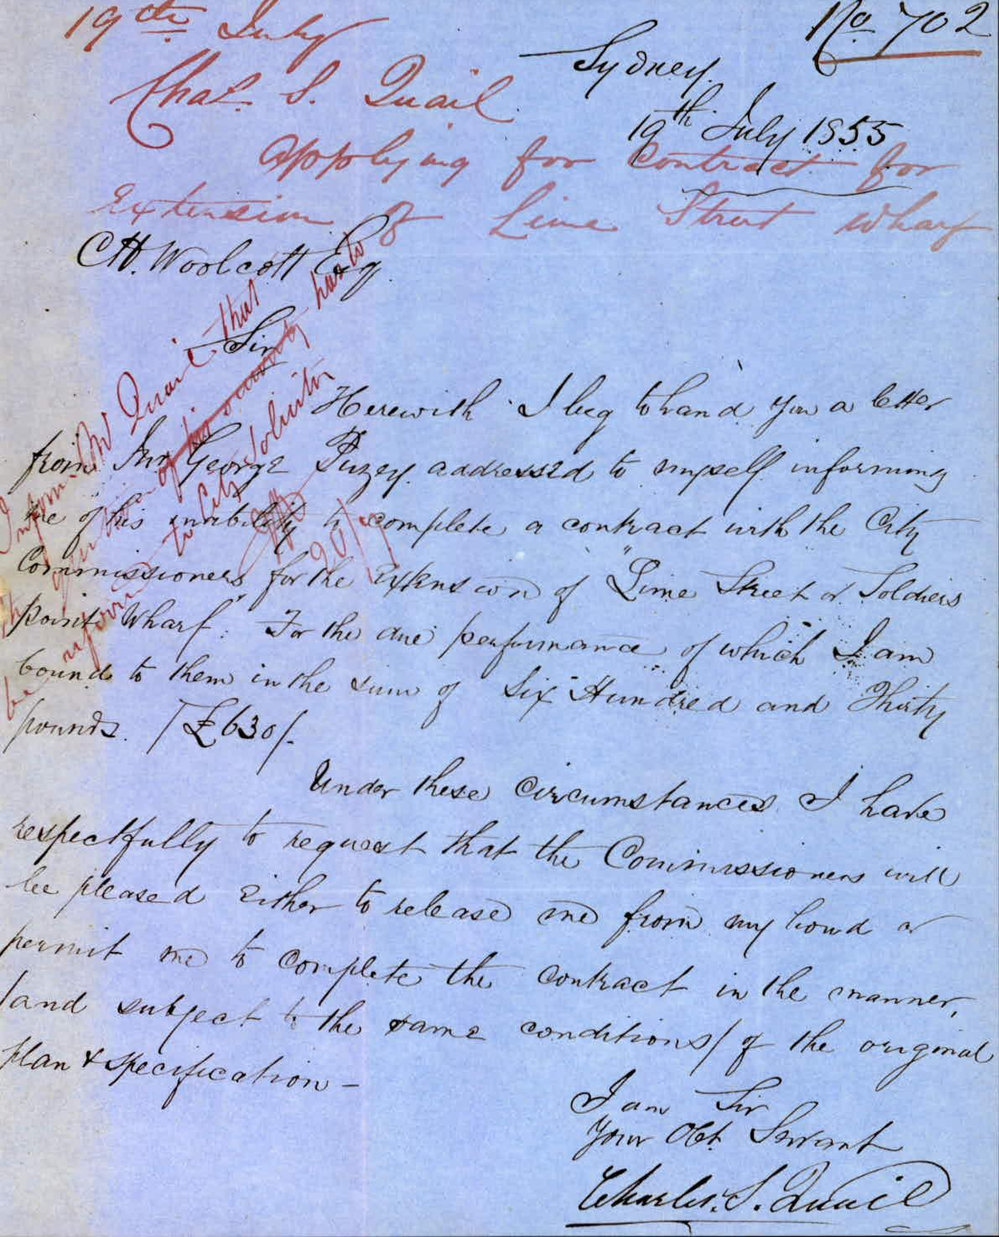 19th July
No 702
Chas. S. Quail
Sydney.
19th July 1855
Applying for Contract for
Extension of Lime Street Wharf
C H. Woolcott Esq
Sir
Herewith I beg to hand you a letter
from Mr George Puzey addressed to myself informing
me of his inability to complete a contract with the City
Commissioners for the extension of "Lime Street or Soldiers
point Wharf". For the due performance of which I am
bound to them in the sum of Six Hundred and Thirty
pounds. /£630/.
Under these circumstances I have
respectfully to request that the Commissioners will
be pleased either to release me from my bond or
permit me to complete the contract in the manner,
/and subject to the same conditions/ of the original
plan & specification -
I am Sir
Your Obt. Servant
Charles. S. Quail
Inform Mr Quail that
the question of his has to
be referred to City Solicitor
20/7